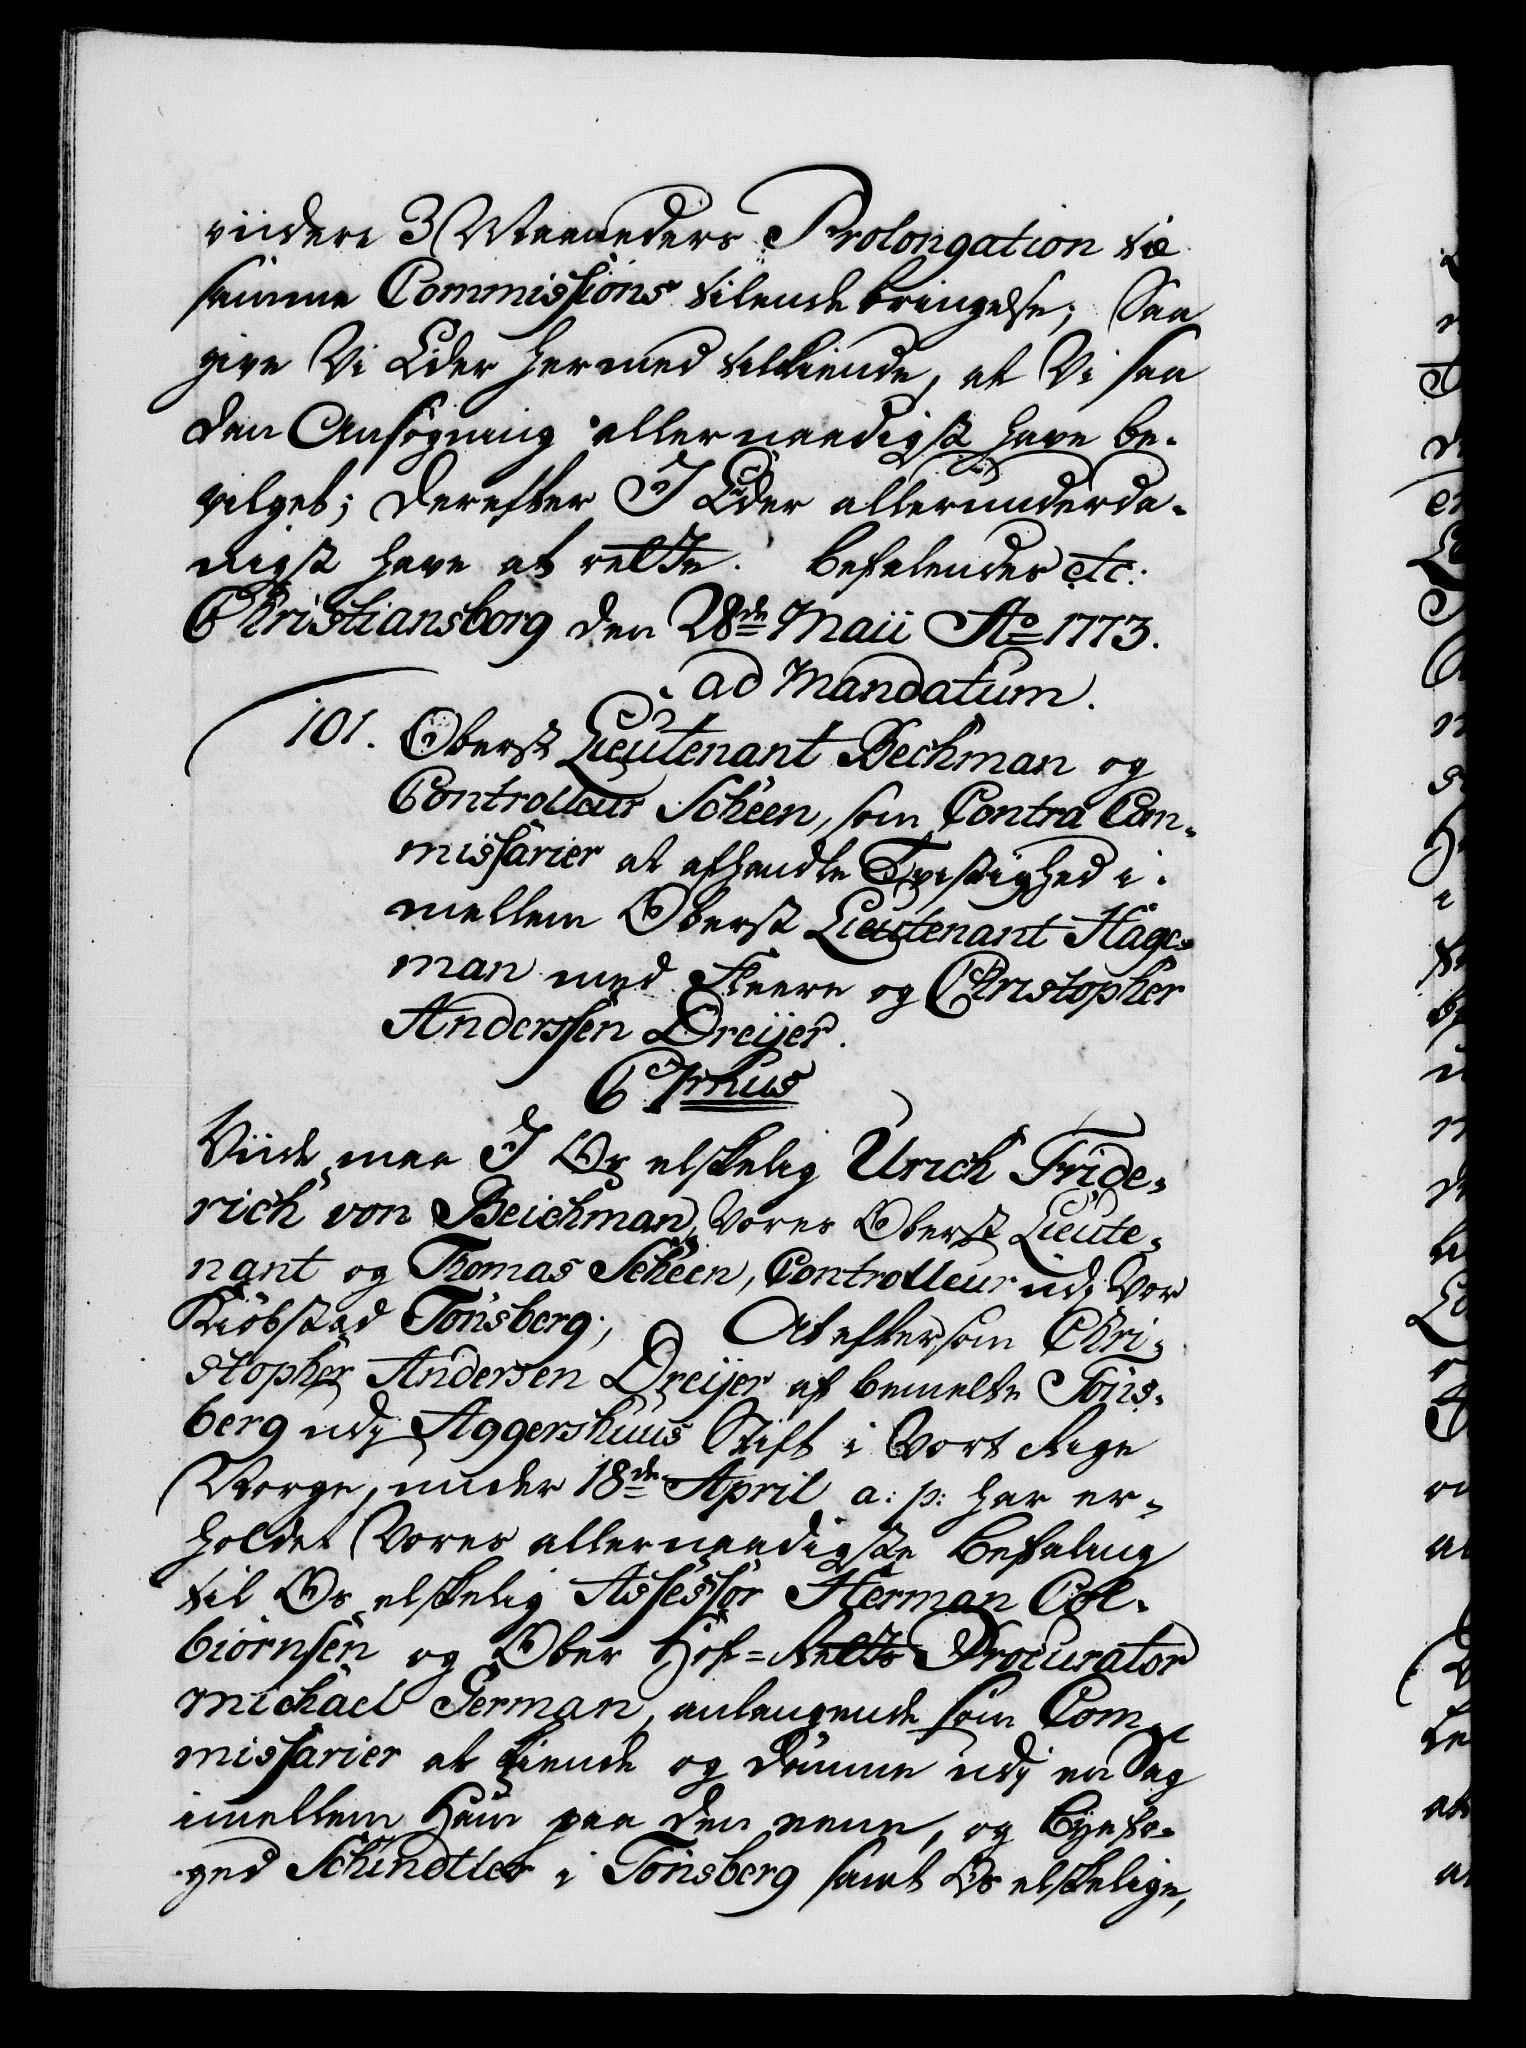 viidere 3 Maaneders Prolongation til
samme Commissions tilendebringelse; Saa
give Vi Eder hermed tilkiende, at Vi saa
dan Ansøgning allernaadigst have be-
vilget; derefter I Eder allerunderda-
nigst have at rette. Befalendes etc:
Christiansborg den 28de Maii Ao 1773.
ad Mandatum.
101. Oberst Lieutenant Bechman og
Controlleur Scheen, som Contra Com-
missarier at afhandle Tvistighed i-
mellem Oberst Lieutenant Hage-
man med Fleere og Christopher
Anderssen Dreijer.
C 7mus
Viide maa I Os elskelig Urich Fride-
rich von Beichman, Vores Oberst Lieute-
nant og Thomas Scheen, Controlleur udi Vor
Kiöbstad Tönsberg; At eftersom Chri-
stopher Andersen Dreijer af bemelte Töns-
berg udi Aggershuus Stift i Vort Rige
Norge, under 18de April a: p: har er-
holdet Vores allernaadigste Befaling
til Os elskelig Assessor Herman Col-
biörnsen og Ober Hof-Retts Procurator
Michael German, anlangende som Com-
missarier at kiende og dömme udi en Sag
imellem Ham paa den eene, og Byefo-
ged Schindtler i Tönsberg samt Os elskelige,